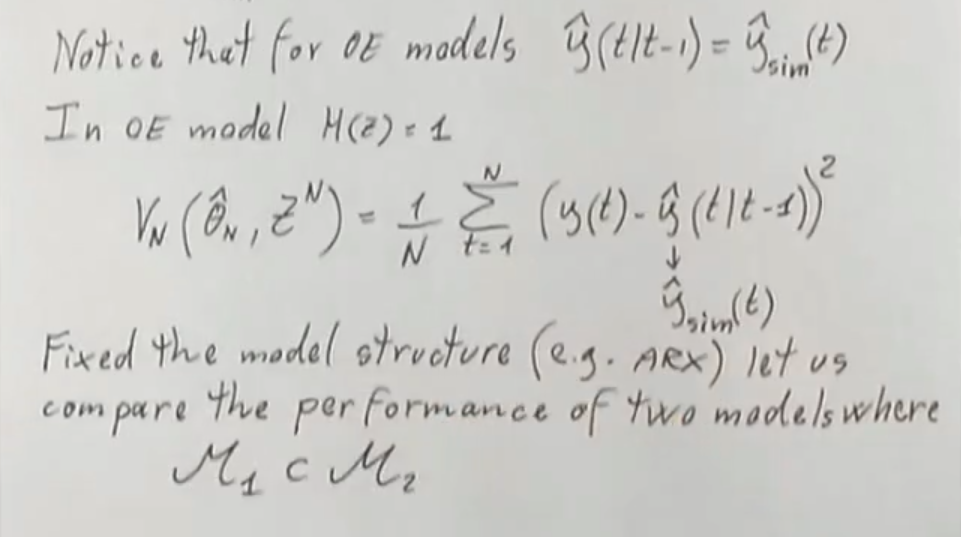 Notice that for OE models ŷ(t|t-1) = ŷsim(t)
In OE model H(z) = 1
V_N(θ̂_N, Z^N) = 1/N ∑_{t=1}^{N} (y(t) - ŷ(t|t-1))²
↓
ŷsim(t)
Fixed the model structure (e.g. ARX) let us
compare the performance of two models where
M₁ ⊂ M₂